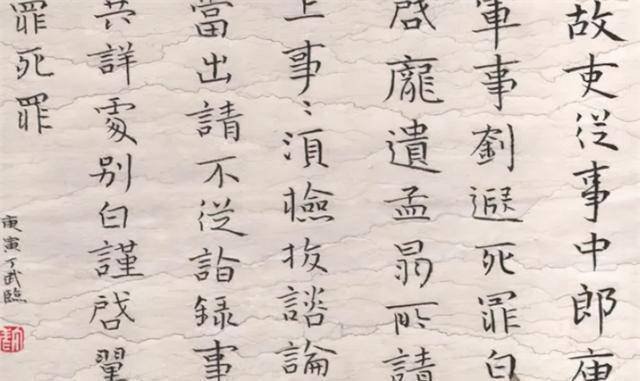 故吏從事中郎庾
軍事劉遐死罪白
啓龐遺孟昺所請
上事〻須檢校諮論
當出請不從詣録事
共詳處別白謹啓翼
罪死罪
庚寅丁武臨